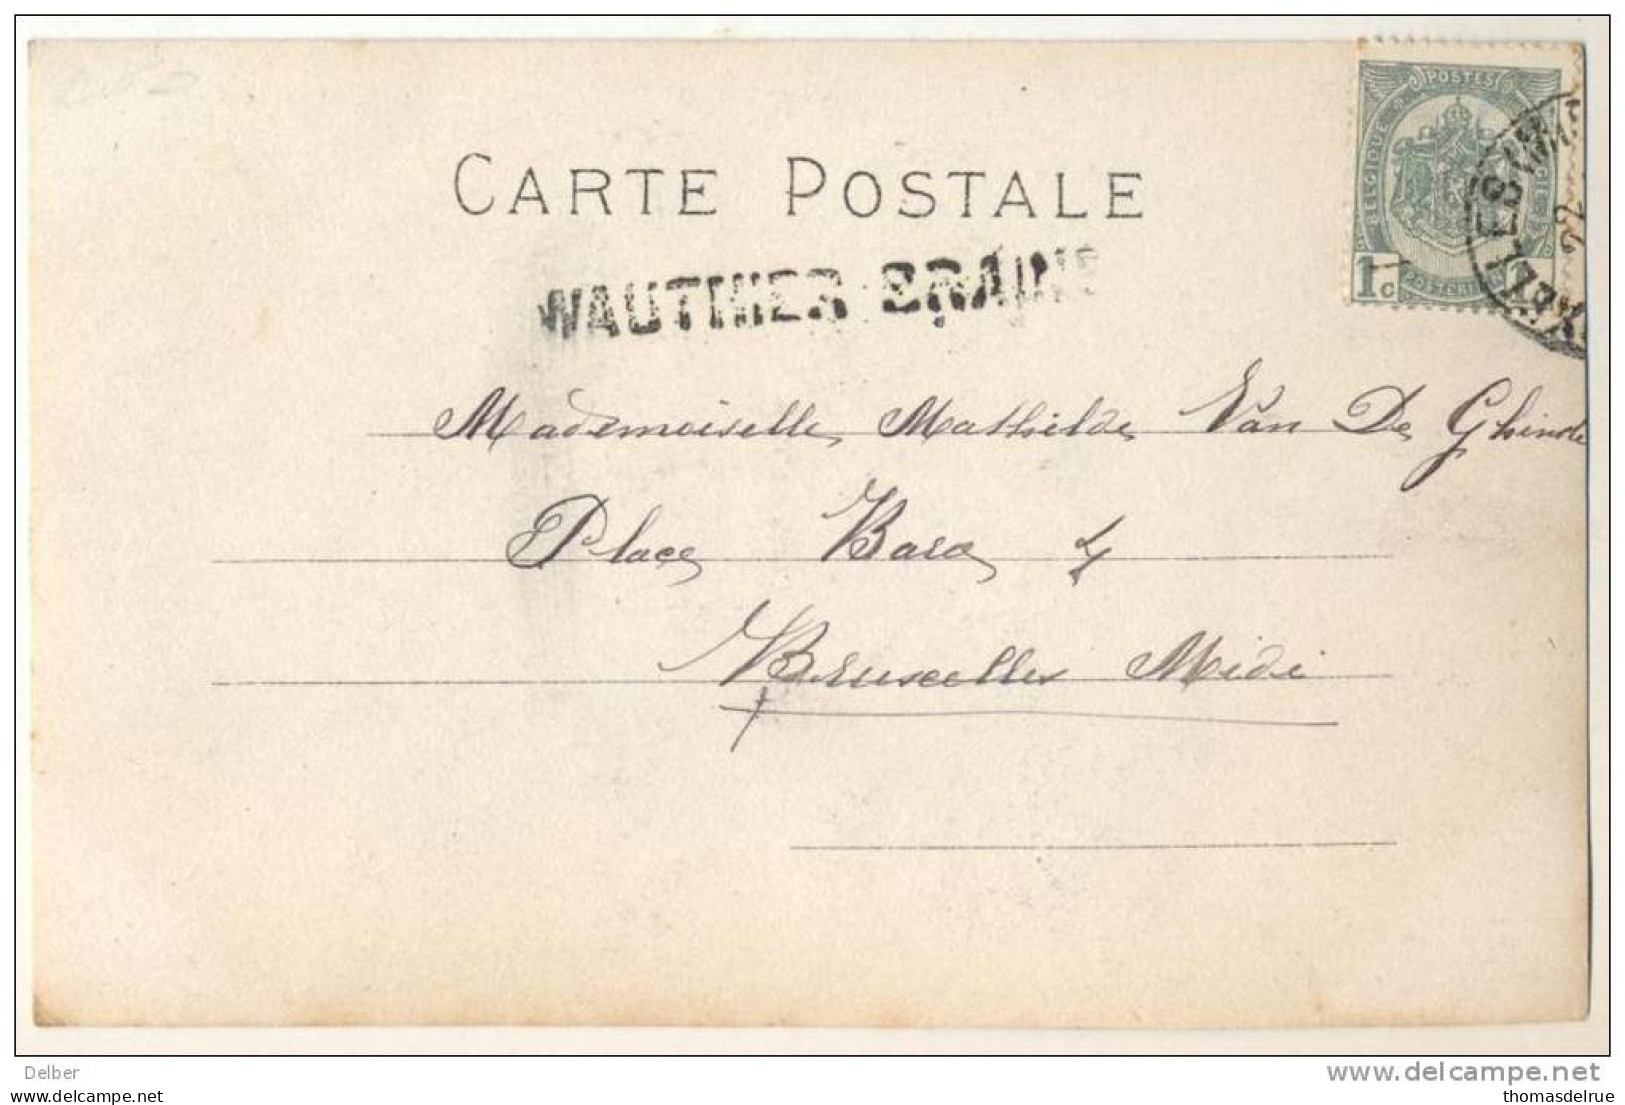 CARTE POSTALE
POSTES
BELGIQUE
1c
WAUTHIER BRAINE
22
Mademoiselle Mathilde Van De Ghinste
Place Bara 4
Bruxelles Midi
Delber
www.delcampe.net
thomasdelrue